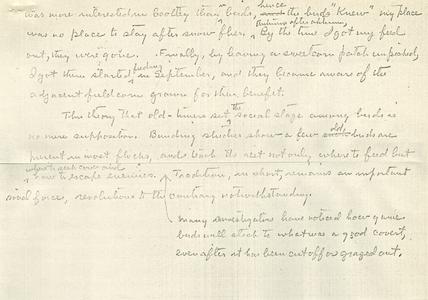 was more interested in booty than birds, hence the birds "knew" my place
was no place to stay after snow flies. Autumn after autumn, By the time I got my feed
out, they were gone. Finally, by leaving a sweetcorn patch unpicked,
I got them started feeding in September, and they became aware of the
adjacent field corn grown for their benefit.
The theory that old-timers set the social stage among birds is
no mere supposition. Banding studies show a few old birds are
present in most flocks, and teach the rest not only where to feed but
where to seek cover and
how to escape enemies. Tradition, in short, remains an important
social force, revolutions to the contrary notwithstanding.
Many investigators have noticed how game
birds will stick to what was a good covert,
even after it has been cut off or grazed out.